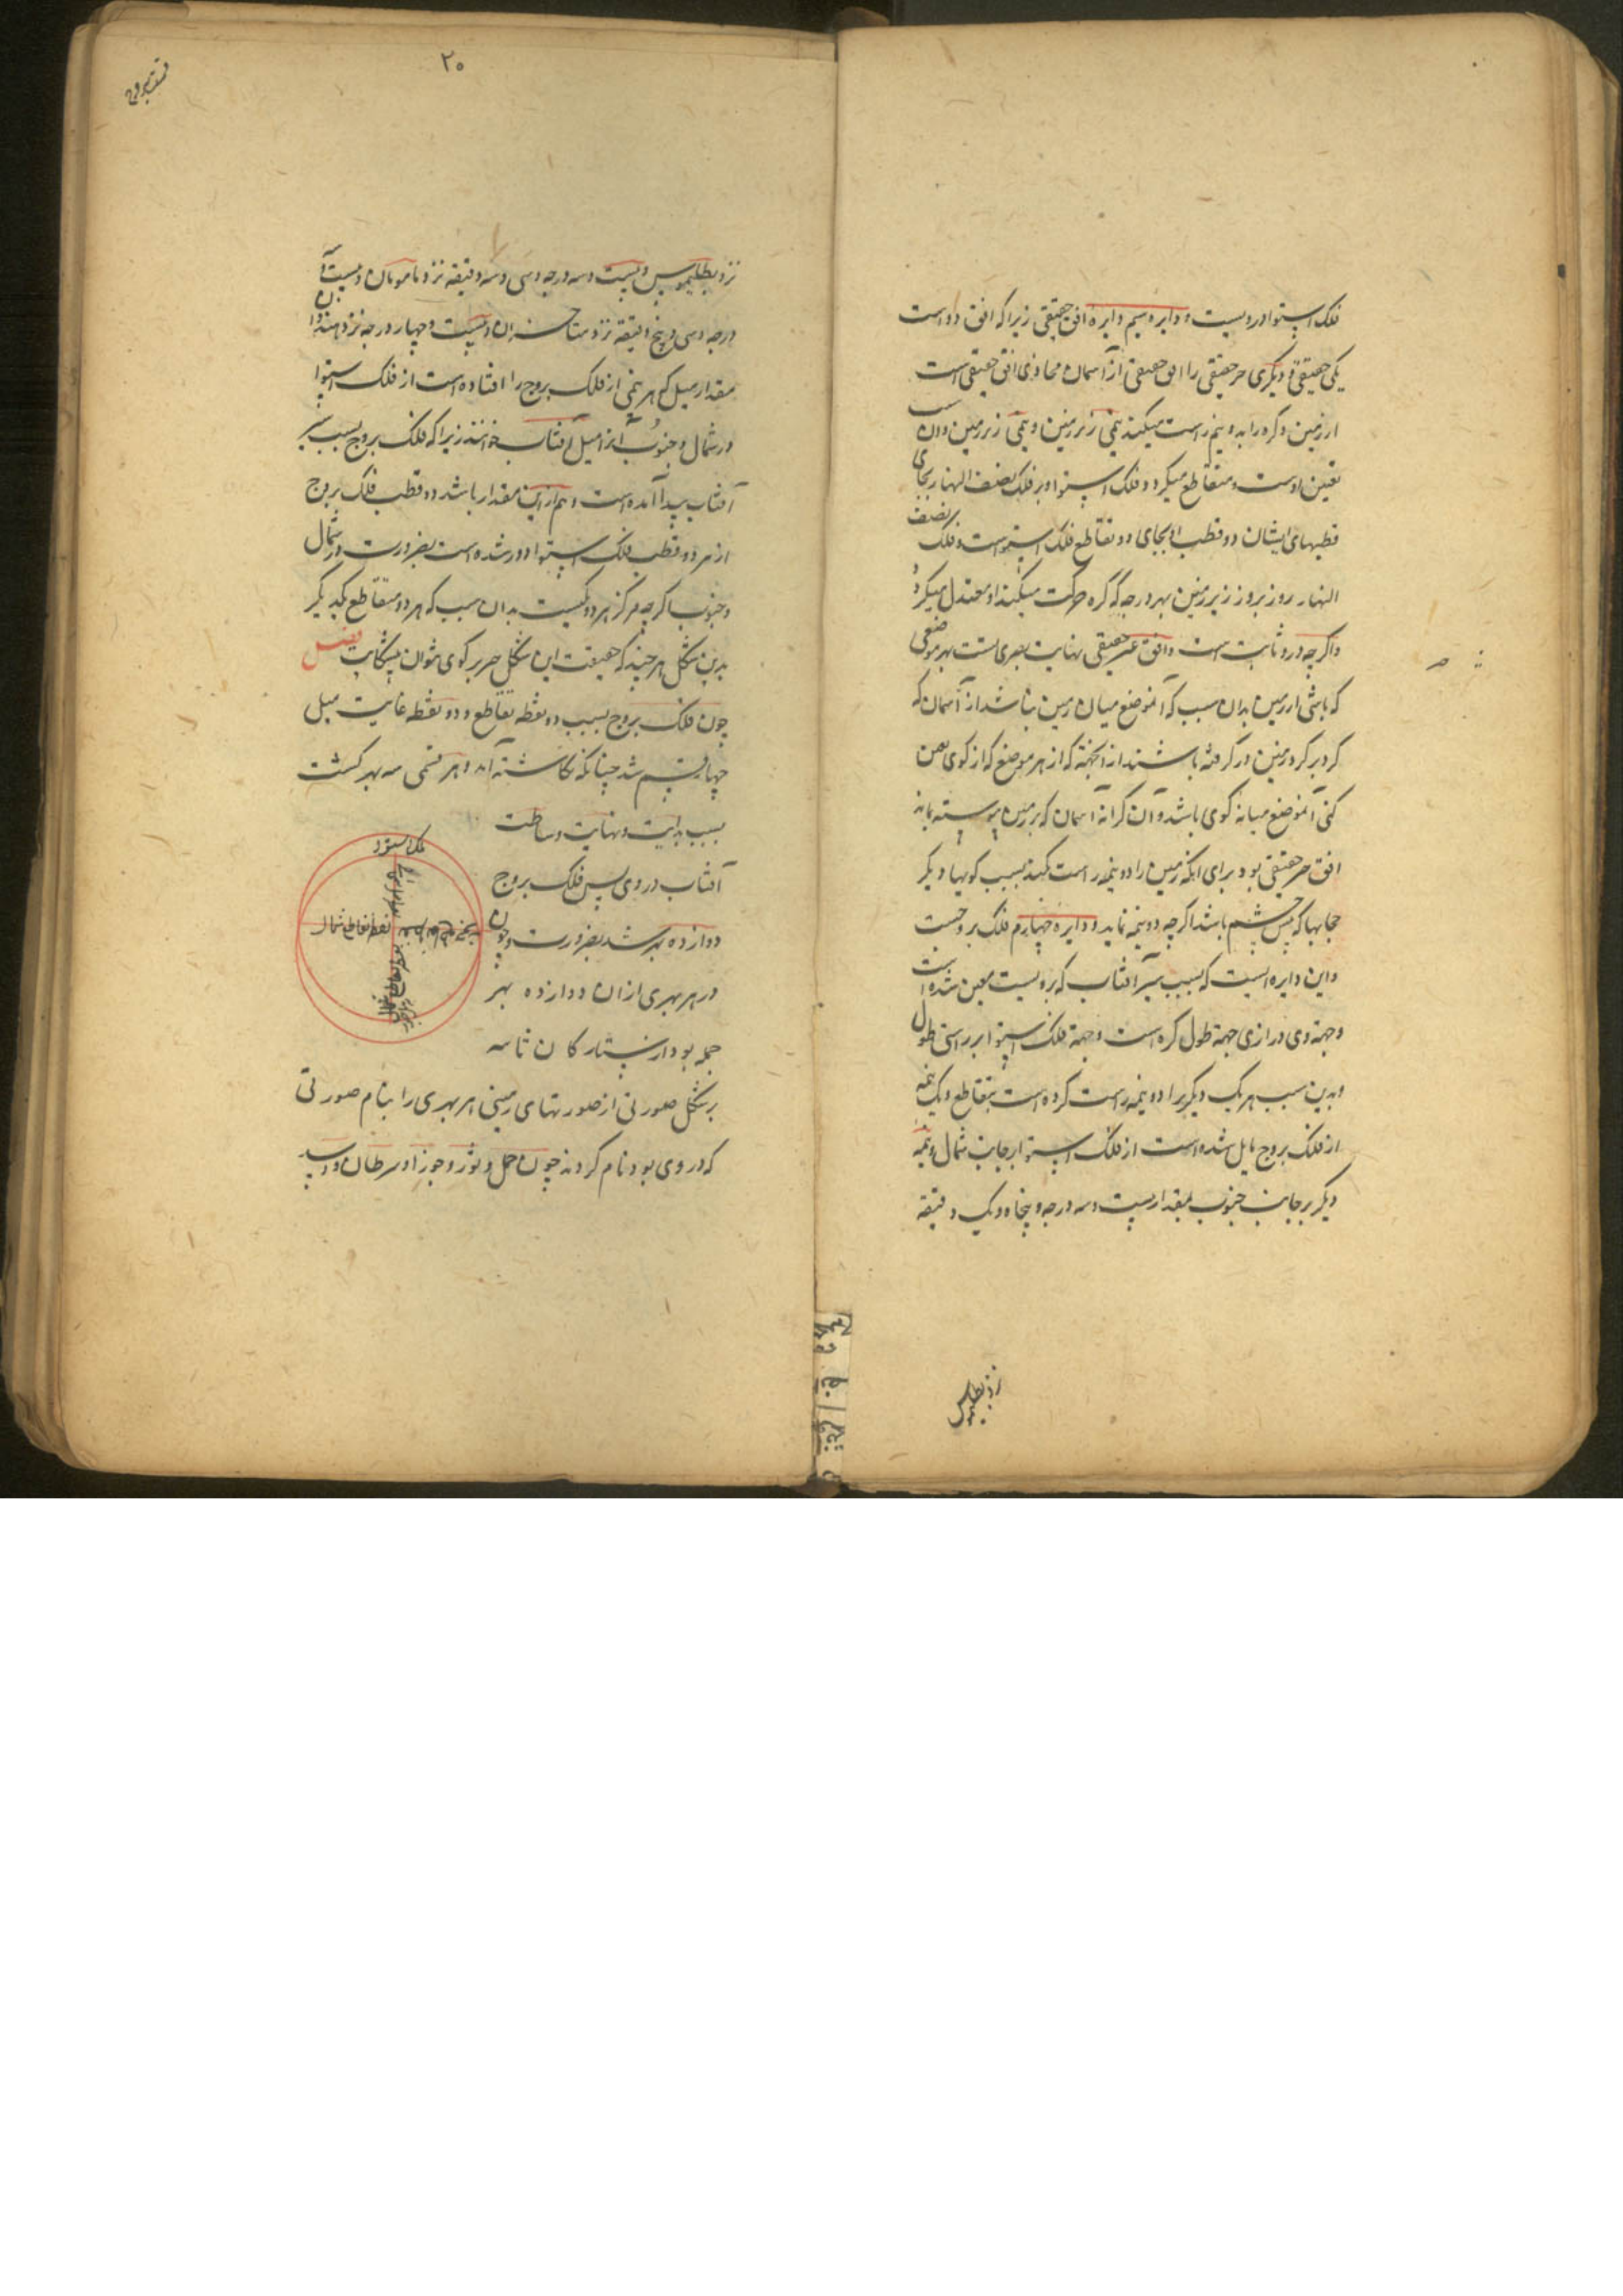 فلک استوا در ویست و دایره سیم دایره افق حقیقی زیرا که افق دو است
یکی حقیقی و دیگری جز حقیقی را افق حقیقی از آسمان محاذی افق حقیقی است
از زمین و کره را بدو نیم راست میکند نیمی زبر زمین و نیمی زیر زمین و آن
تعین اوست و متقاطع میگردد فلک استوا و بر فلک نصف النهار بجای
قطبهای ایشان دو قطب او بجای دو تقاطع فلک استواست و فلک نصف
النهار روز بروز زیر زمین بهر درجه که کره حرکت میکند او معتدل میگردد
و اگرچه درو ثابت است و افق غیر حقیقی نهایت بصری است بهر موضعی
که باشی از زمین بدان سبب که آنموضع میان زمین باشد از آسمان که
گرد بر گرد زمین در گرفته باشند از آنجهة که از هر موضع که از کوی
کنی آنموضع میانه کوی باشد و آن کرانه آسمان که بر زمین پیوسته نماید
افق جز حقیقی بود برای آنکه زمین را دو نیمه راست نکند بسبب کوهها و دیگر
حجابها که پیش چشم باشد اگرچه دو نیمه نماید و دایره چهارم فلک بروجست
و این دایره ایست که بسبب سیر آفتاب که برویست معین شده است
و جهة وی درازی جهة طول کره است و جهة فلک استوا بر راستی طول
و بدین سبب هر یک دیگر را دو نیمه راست کرده است بتقاطع و یک نیمه
از فلک بروج مایل شده است از فلک استوا بر جانب شمال و نیمه
دیگر بر جانب جنوب بمقدار بیست و سه درجه و پنجاه و یک دقیقه
نزد بطلمیوس
۲۰
نزد بطلیموس و بیست و سه درجه و سی و سه دقیقه نزد مامونیان و بیست و سه
درجه و سی و پنج دقیقه نزد متاخران و بیست و چهار درجه نزد هندوان
مقدار میل که هر نیمی از فلک بروج را افتاده است از فلک استوا
در شمال و جنوب آنرا میل آفتاب خوانند زیرا که فلک بروج بسبب سیر
آفتاب پیدا آمده است و هم ازین مقدار باشد دو قطب فلک بروج
از هر دو قطب فلک استوا دور شده است بضرورت در شمال
و جنوب اگرچه مرکز هر دو یکیست بدان سبب که هر دو متقاطع یکدیگر
بدین شکل هر چند که حقیقت این شکل جز بر کوی نتوان نگاشت فصل
چون فلک بروج بسبب دو نقطه تقاطع و دو نقطه غایت میل
چهار قسم شد چنانکه نگاشته آمد و هر قسمی سه بهر گشت
بسبب بدایت و نهایت و ساطت
آفتاب در وی پس فلک بروج
دوازده بهر شد بضرورت و چون
در هر بهری از ان دوازده بهر
جمله بود از ستارگان ثابته
بر شکل صورتی از صورتهای زمینی هر بهری را بنام صورتی
که در وی بود نام کردند چون حمل و ثور و جوزا و سرطان و اسد
فلک استوا
نقطه تقاطع شمال